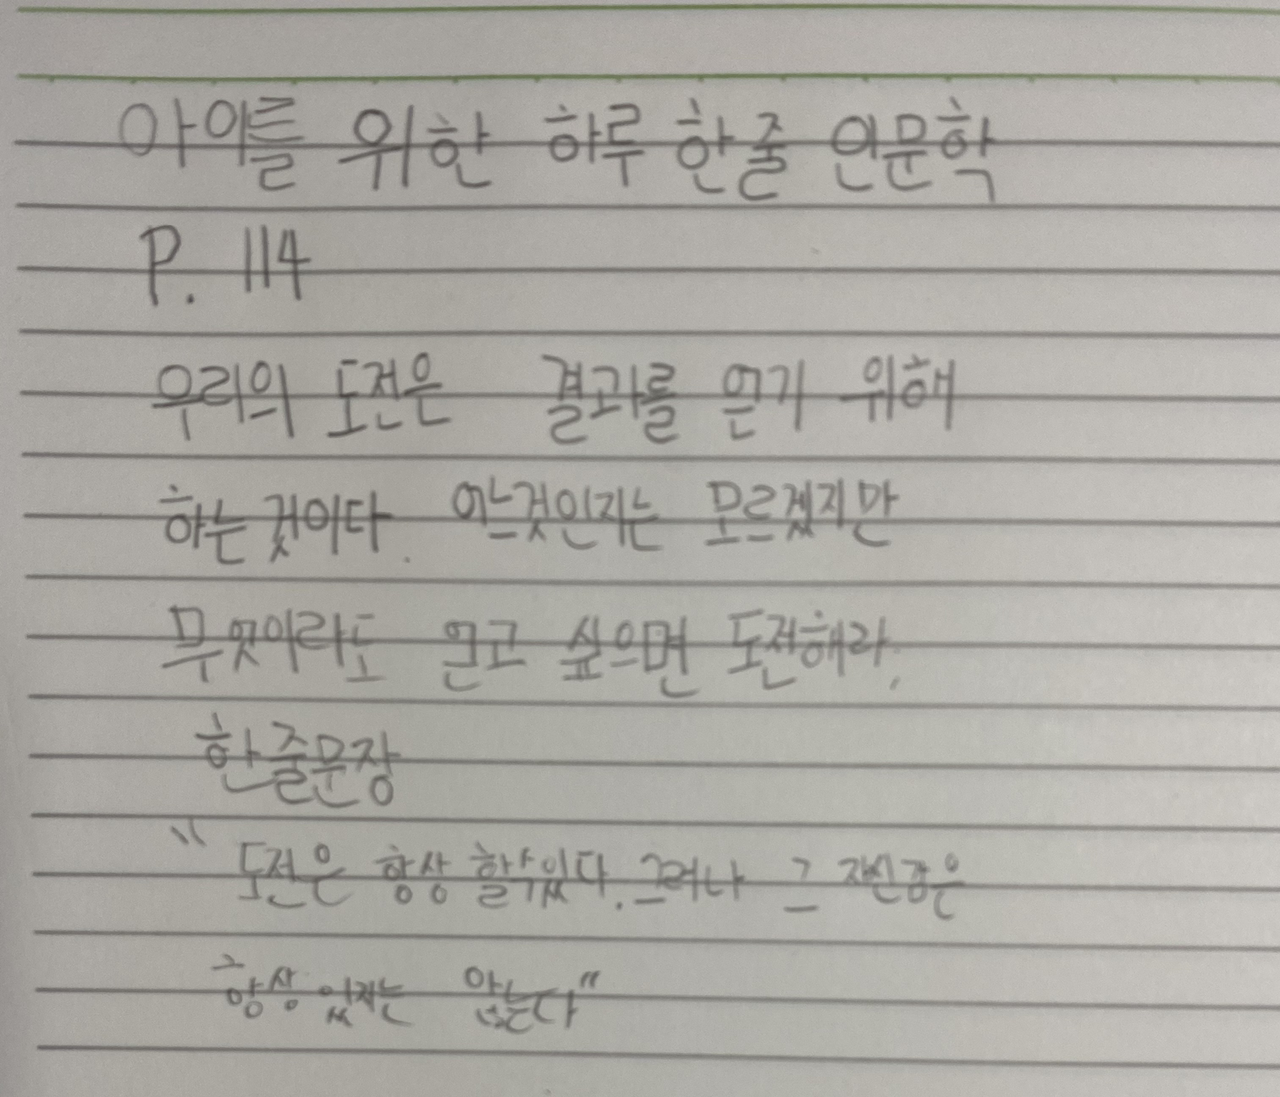 아이를 위한 하루 한줄 인문학
P. 114
우리의 도전은 결과를 얻기 위해
하는것이다. 어느것인지는 모르겠지만
무엇이라도 얻고 싶으면 도전해라.
한줄문장
"도전은 항상 할수있다. 그러나 그 자신감은
항상 있지는 않는다"